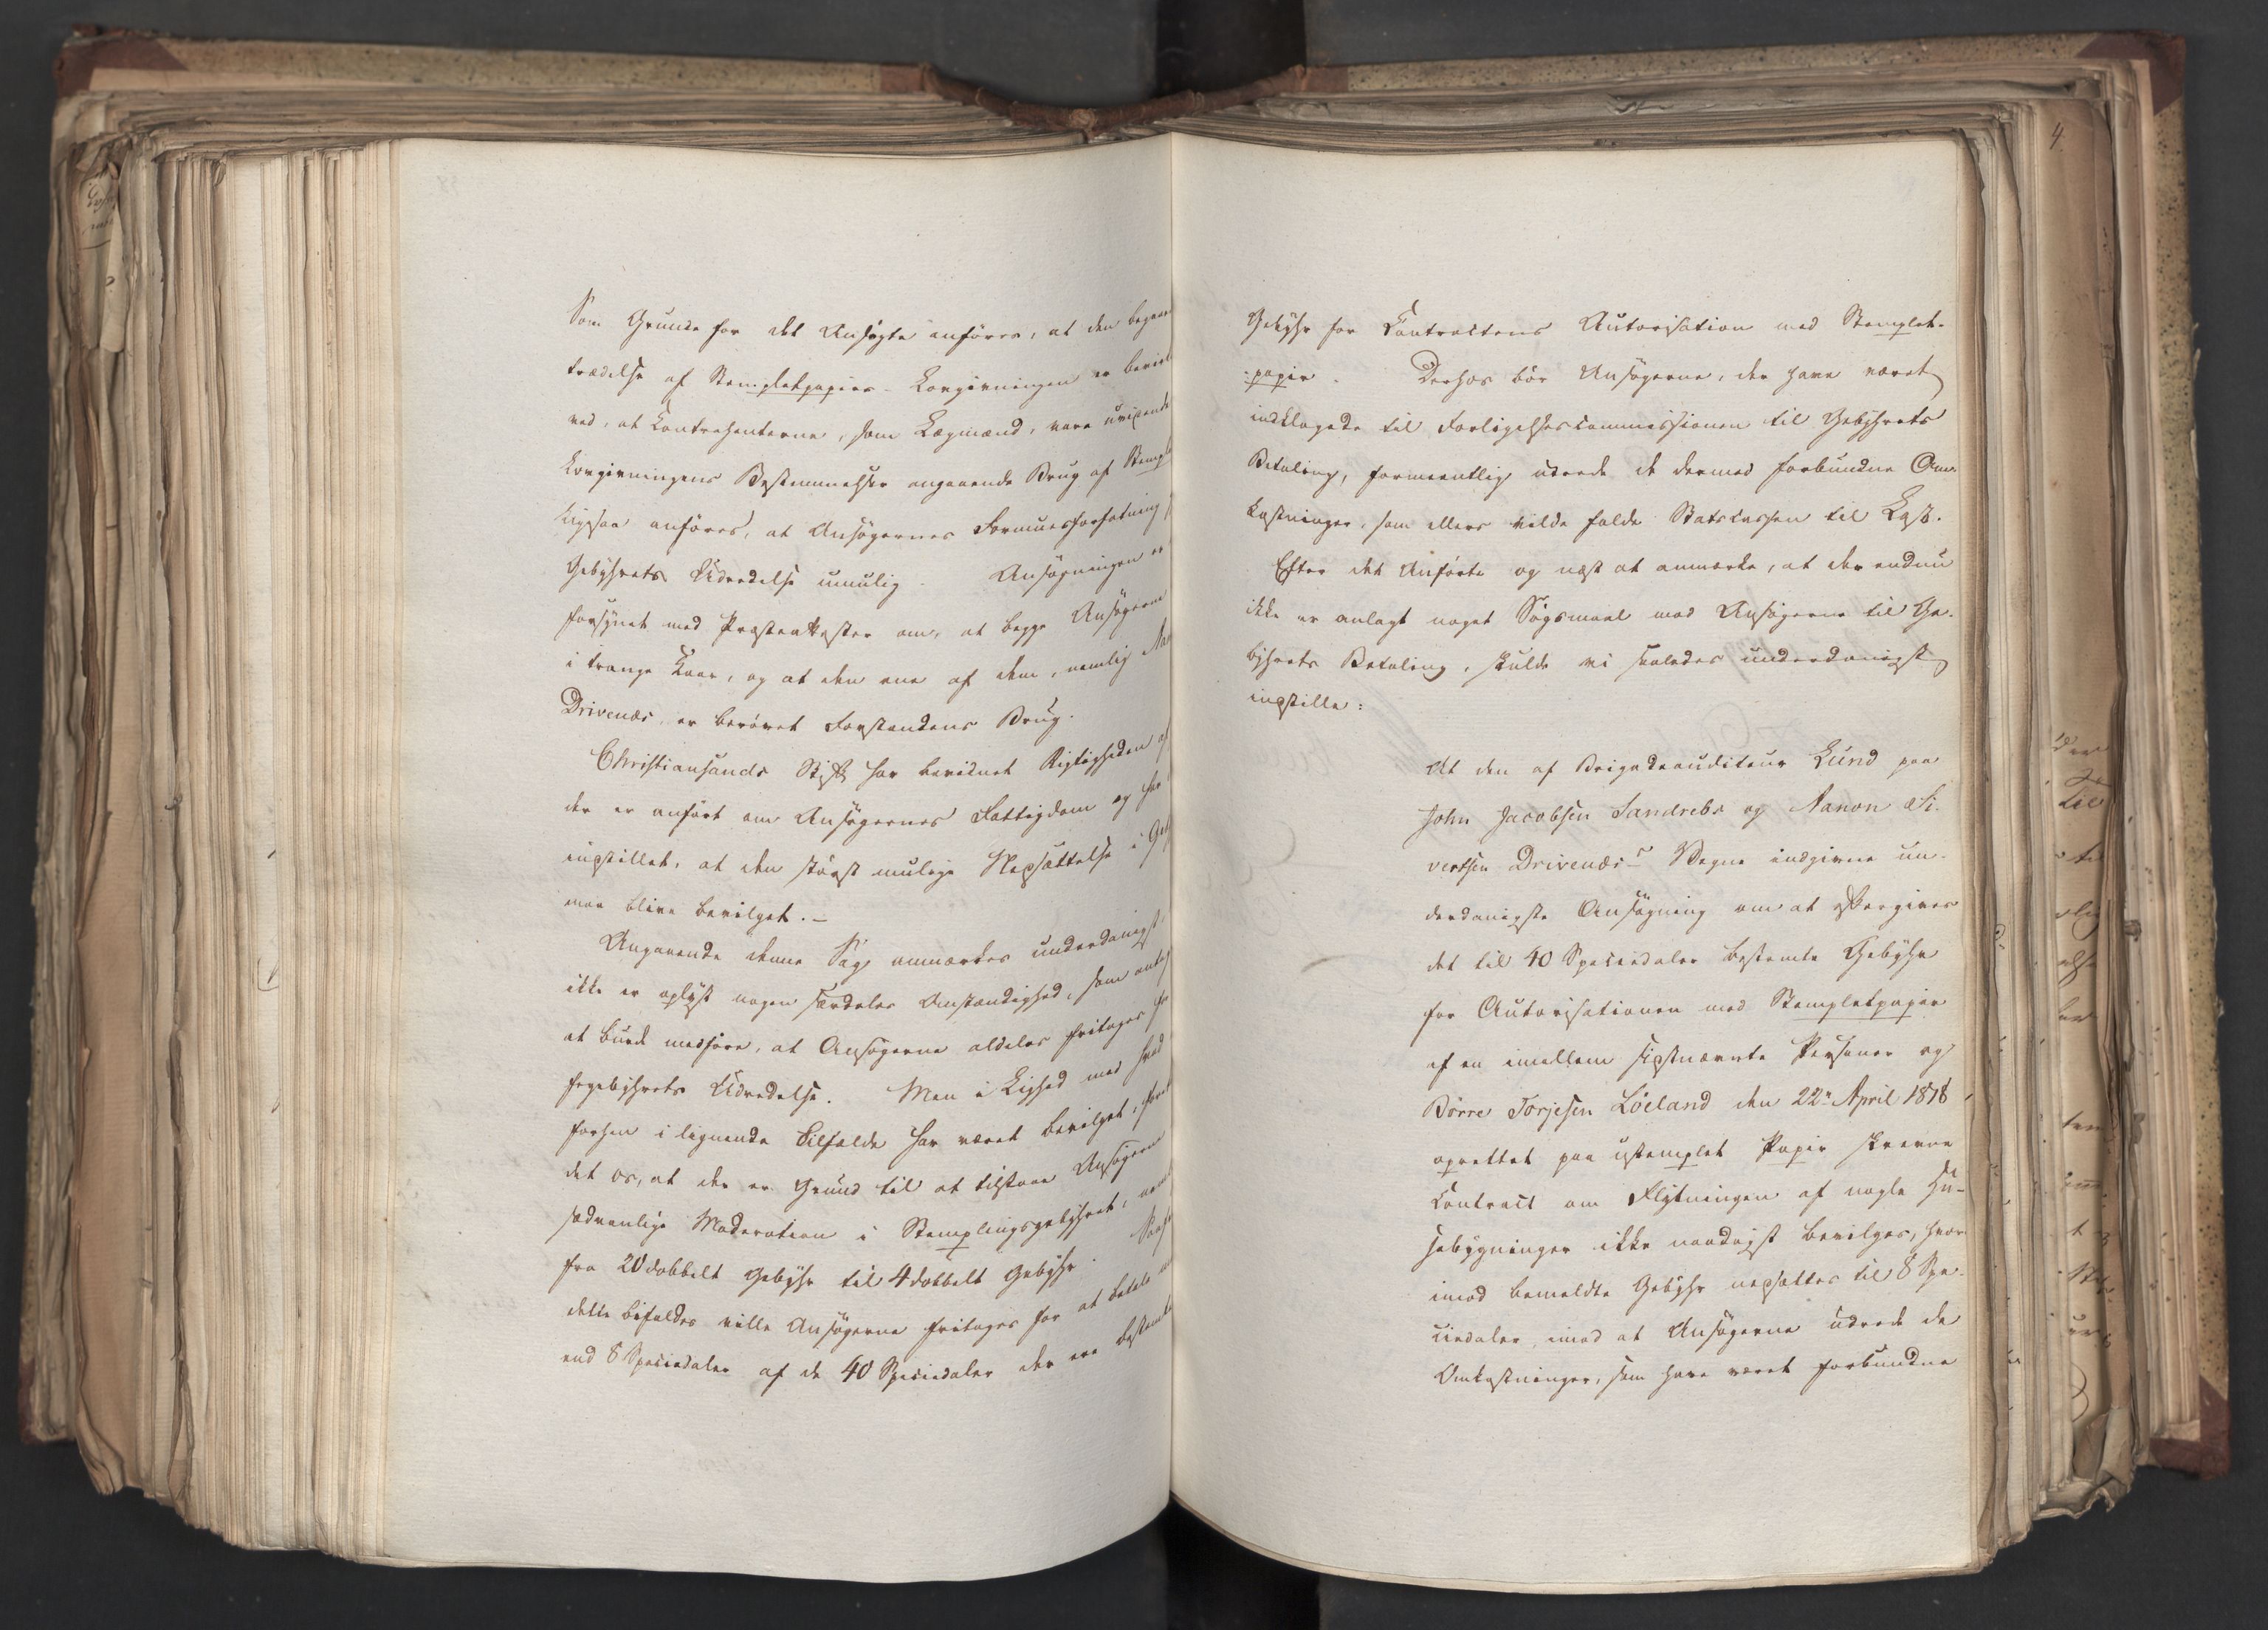 Som Grunde for det Ansøgte anføres, at den begaae
trædelse af Stempletpapiirs-Lovgivningen er bevir
ved, at Contrahenterne, som Lægmænd, vare uvidende
Lovgivningens Bestemmelser angaaende Brug af Stemp
Ligesaa anføres, at Ansøgernes Formuesforfatning
Gebyhrets Udredelse umulig. Ansøgningen er
forsynet med Præsteattester om, at begge Ansøgerne
i trange Kaar, og at den ene af dem, nemlig Na
Drivenæs, er berøvet Forstandens Brug.
Christiansands Stift har bevidnet Rigtigheden af
der er anført om Ansøgernes Fattigdom og har
indstillet, at den størst mulige Nedsættelse i Geb
maa blive bevilget.-
Angaaende denne Sag anmærkes underdanigst,
ikke er oplyst nogen særdeles Omstændighed, som antag
at burde medføre, at Ansøgerne aldeles fritages for
pegebyhrets Udredelse. Men i Lighed med hvad
forhen i lignende Tilfælde har været bevilget, fore
det os, at der er Grund til at tilstaae Ansøgerne
sædvanlige Moderation i Stemplingsgebyhret, nem
fra 20dobbelt Gebyhr til 4dobbelt Gebyhr. Naar
dette bifaldes ville Ansøgerne fritages for at betale
end 8 Speciedaler af de 40 Speciedaler der ere bestemte
4.
Gebyhr for Contractens Autorisation med Stemplet-
papir. Derhos bør Ansøgerne, der have været
indklagede til Forligelsescommissionen til Gebyhrets
Betaling, formeentlig udrede de dermed forbundne Om-
kostninger, som ellers vilde falde Statskassen til Last.
Efter det Anførte og næst at anmærke, at der endnu
ikke er anlagt noget Søgsmaal mod Ansøgerne til Ge-
byhrets Betaling, skulde vi saaledes underdanigst
indstille:
At den af Brigadeauditeur Lund paa
John Jacobsen Sandrebs og Nanon Si-
vertsen Drivenæs's Vegne indgivne un-
derdanigste Ansøgning om at eftergives
det til 40 Speciedaler bestemte Gebyhr
for Autorisationen med Stempletpapir
af en imellem sidstnævnte Personer og
Börre Torjesen Löeland den 22de April 1818
oprettet paa ustemplet Papir skreven
Contract om Flytningen af nogle Hu-
sebygninger ikke naadigst bevilges, hvor-
imod bemeldte Gebyhr nedsættes til 8 Spe-
ciedaler, imod at Ansøgerne udrede de
Omkostninger, som have været forbundne